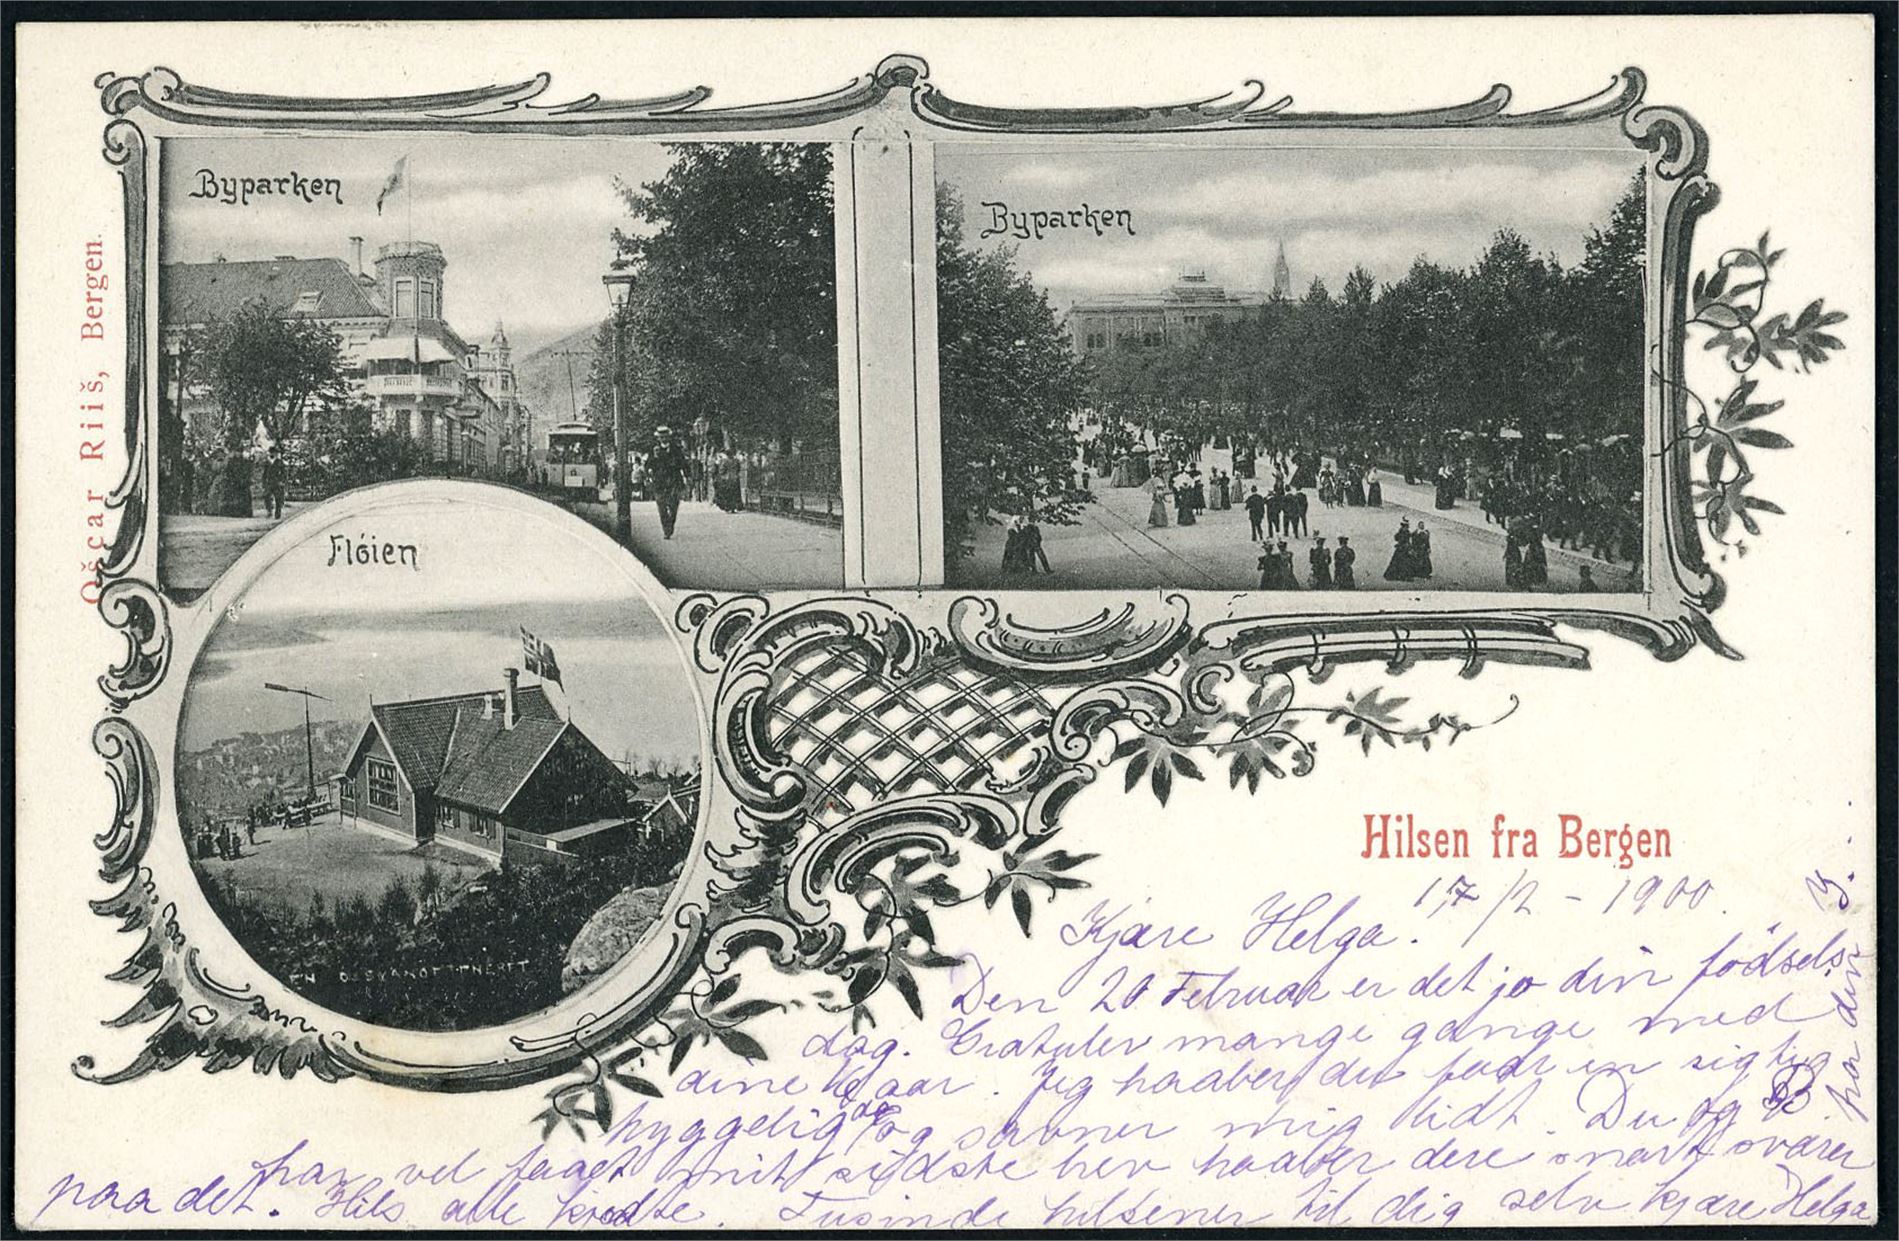 Byparken
Byparken
Fløien
Osçar Riiš, Bergen.
Hilsen fra Bergen
17/2 - 1900.
Kjære Helga.
Den 20 Februar er det jo din födsels-
dag. Gratuler mange gange med
dine aar. Jeg haaber du faar en rigtig
hyggelig dag og savner mig lidt. Du og B
har vel faaet mit sidste brev haaber dere snart svarer
paa det. Hils alle kjendte. Tusinde hilsener til dig selv kjære Helga
fra din